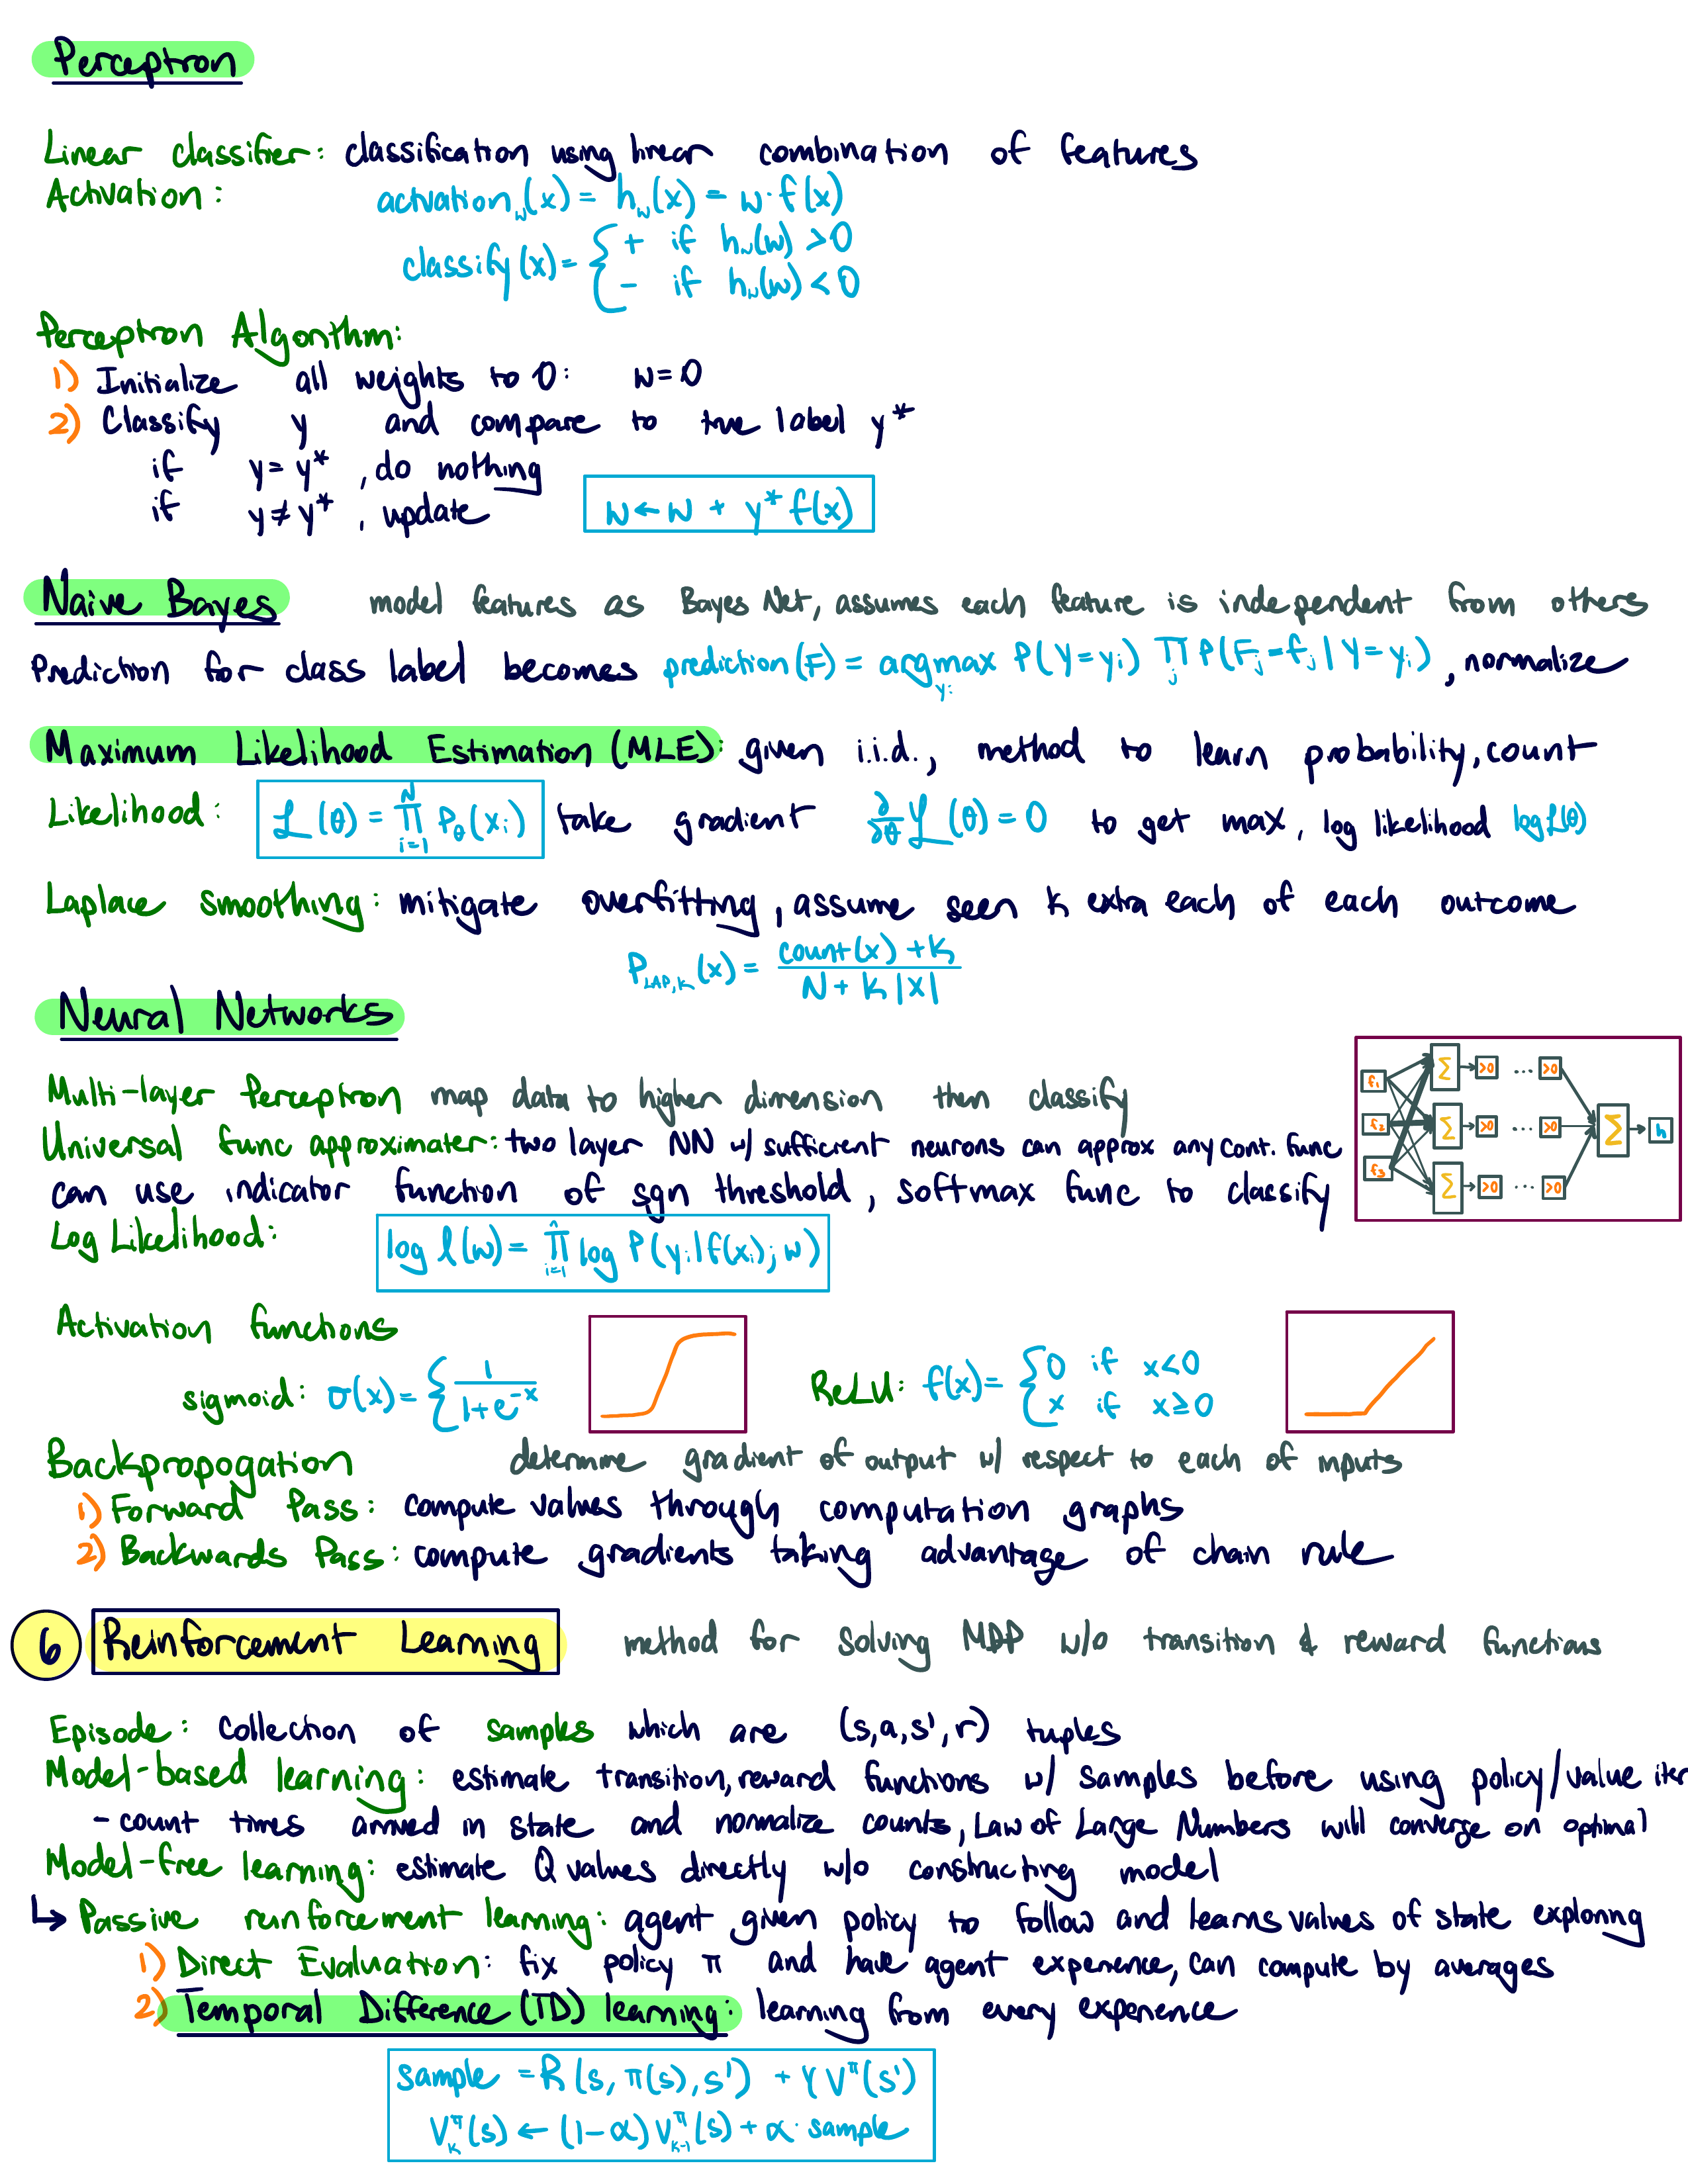 Perceptron
Linear classifier: classification using linear combination of features
Activation: activation_w(x) = h_w(x) = w · f(x)
classify(x) = { + if h_w(w) > 0
- if h_w(w) < 0
Perceptron Algorithm:
1) Initialize all weights to 0: w = 0
2) Classify y and compare to true label y*
if y = y*, do nothing
if y ≠ y*, update w ← w + y* f(x)
Naive Bayes model features as Bayes Net, assumes each feature is independent from others
Prediction for class label becomes prediction(F) = argmax_{y_i} P(Y=y_i) ∏_j P(F_j=f_j | Y=y_i), normalize
Maximum Likelihood Estimation (MLE): given i.i.d., method to learn probability, count
Likelihood: ℒ(θ) = ∏_{i=1}^N P_θ(x_i) take gradient ∂/∂θ ℒ(θ) = 0 to get max, log likelihood log ℒ(θ)
Laplace smoothing: mitigate overfitting, assume seen k extra each of each outcome
P_{LAP,k}(x) = (count(x) + k) / (N + k|X|)
Neural Networks
Multi-layer Perceptron map data to higher dimension then classify
Universal func approximater: two layer NN w/ sufficient neurons can approx any cont. func
can use indicator function of sgn threshold, softmax func to classify
f1 Σ >0 ... >0
f2 Σ >0 ... >0 Σ h
f3 Σ >0 ... >0
Log Likelihood: log l(w) = ∏_{i=1}^n log P(y_i | f(x_i); w)
Activation functions
sigmoid: σ(x) = { 1 / (1 + e^-x)
ReLU: f(x) = { 0 if x < 0
x if x ≥ 0
Backpropogation determine gradient of output w/ respect to each of inputs
1) Forward Pass: compute values through computation graphs
2) Backwards Pass: compute gradients taking advantage of chain rule
6 Reinforcement Learning method for solving MDP w/o transition & reward functions
Episode: collection of samples which are (s,a,s',r) tuples
Model-based learning: estimate transition, reward functions w/ samples before using policy/value iter
- count times arrived in state and normalize counts, Law of Large Numbers will converge on optimal
Model-free learning: estimate Q values directly w/o constructing model
↳ Passive reinforcement learning: agent given policy to follow and learns values of state exploring
1) Direct Evaluation: fix policy π and have agent experience, can compute by averages
2) Temporal Difference (TD) learning: learning from every experience
sample = R(s, π(s), s') + γV^π(s')
V_k^π(s) ← (1-α) V_{k-1}^π(s) + α · sample